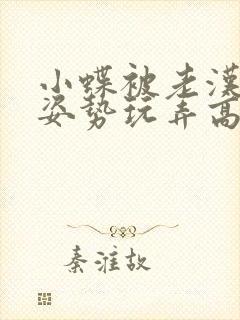 小蝶被老漢
姿势玩弄高
秦淮故